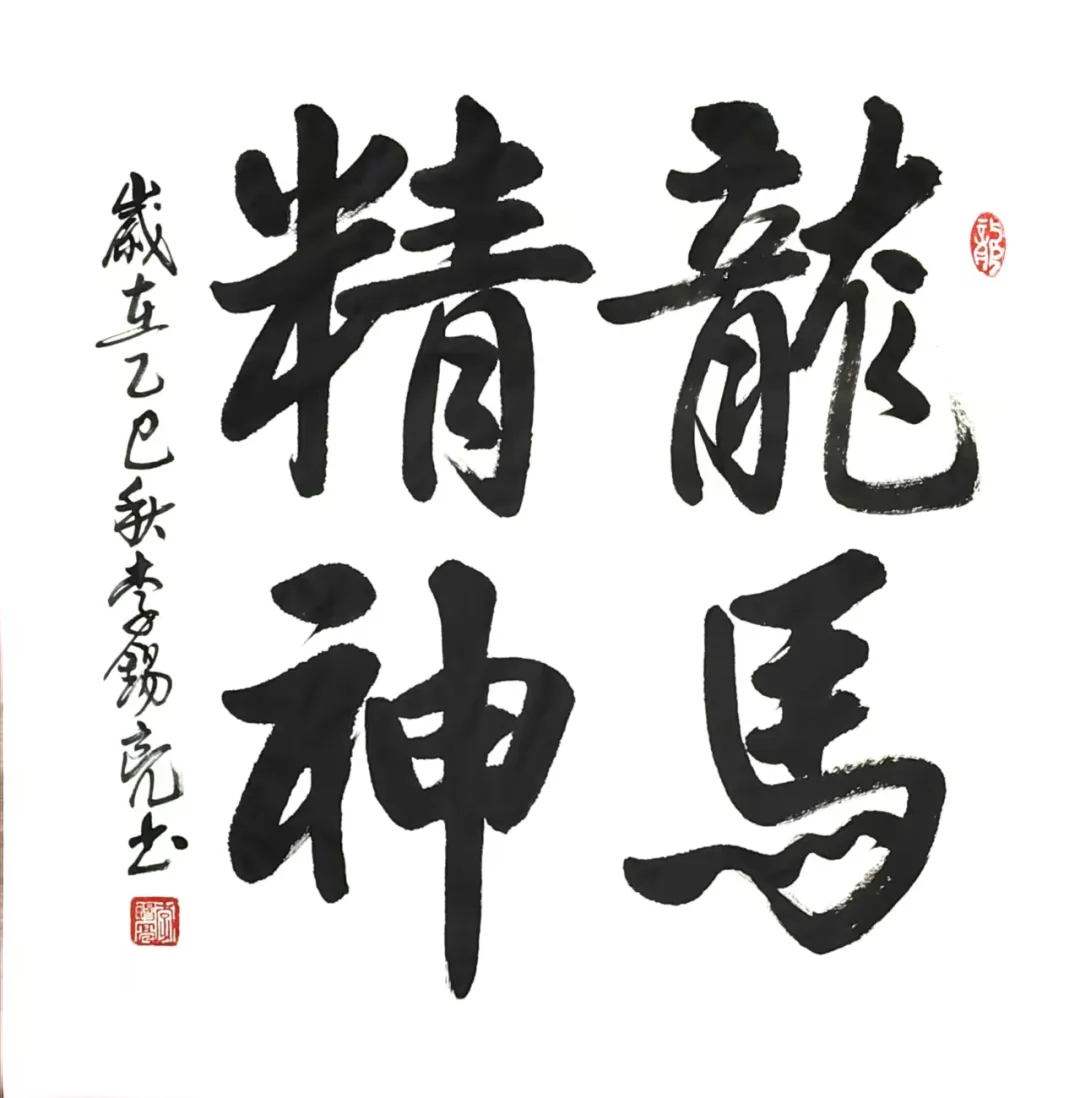 龍馬
精神
歲在乙巳秋李錫亮书